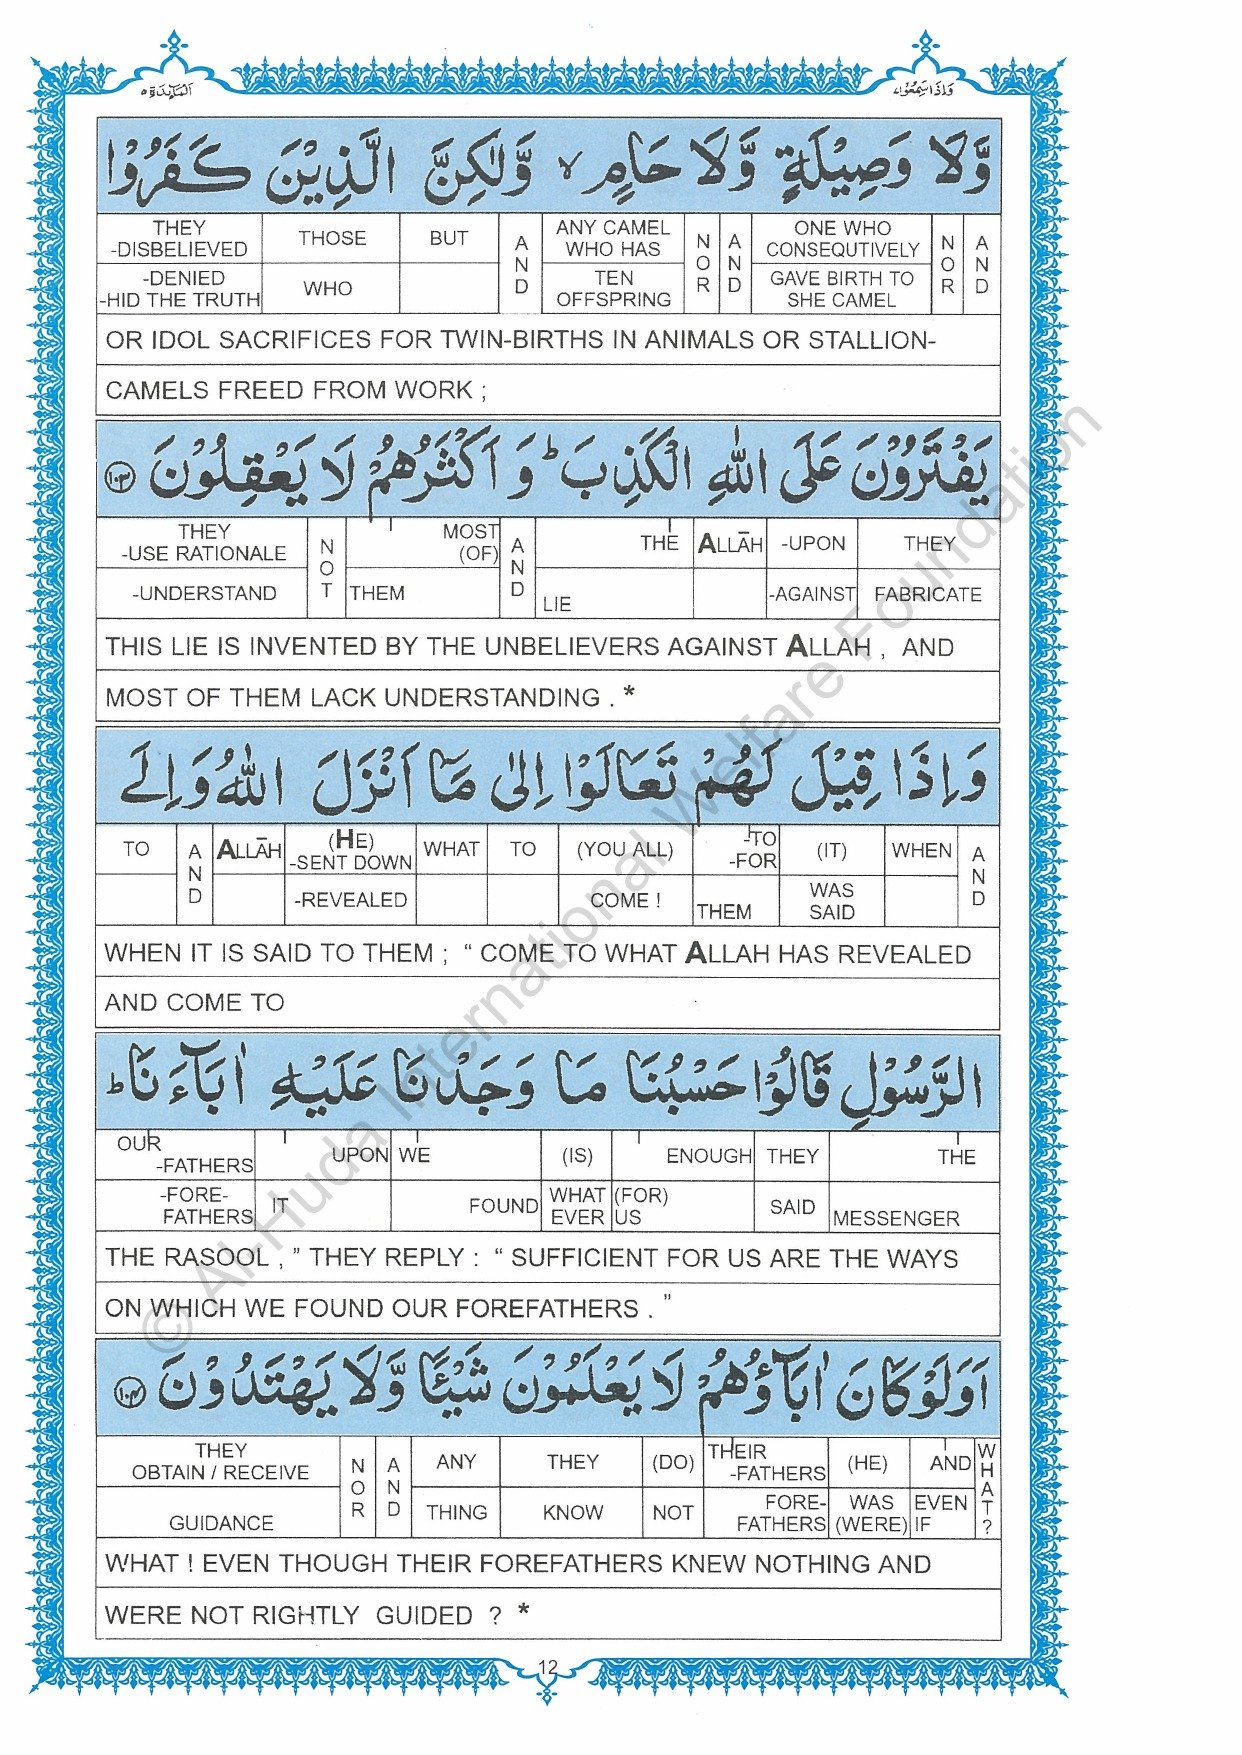 المآئدة ٥
واذا سمعوا ٧
وَّلَا وَصِيْلَةٍ وَّلَا حَامٍ ۙ وَّلٰكِنَّ الَّذِيْنَ كَفَرُوْا
THEY -DISBELIEVED THOSE BUT AND ANY CAMEL WHO HAS NOR AND ONE WHO CONSEQUTIVELY NOR AND
-DENIED -HID THE TRUTH WHO TEN OFFSPRING GAVE BIRTH TO SHE CAMEL
OR IDOL SACRIFICES FOR TWIN-BIRTHS IN ANIMALS OR STALLION-
CAMELS FREED FROM WORK ;
يَفْتَرُوْنَ عَلَى اللّٰهِ الْكَذِبَ ؕ وَ اَكْثَرُهُمْ لَا يَعْقِلُوْنَ ۝۱۰۳
THEY -USE RATIONALE NOT MOST (OF) AND THE ALLĀH -UPON THEY
-UNDERSTAND THEM LIE -AGAINST FABRICATE
THIS LIE IS INVENTED BY THE UNBELIEVERS AGAINST ALLAH , AND
MOST OF THEM LACK UNDERSTANDING . *
وَاِذَا قِيْلَ لَهُمْ تَعَالَوْا اِلٰى مَآ اَنْزَلَ اللّٰهُ وَاِلَى
TO AND ALLĀH (HE) -SENT DOWN WHAT TO (YOU ALL) -TO -FOR (IT) WHEN AND
-REVEALED COME ! THEM WAS SAID
WHEN IT IS SAID TO THEM ; “ COME TO WHAT ALLAH HAS REVEALED
AND COME TO
الرَّسُوْلِ قَالُوْا حَسْبُنَا مَا وَجَدْنَا عَلَيْهِ اٰبَآءَنَا ؕ
OUR -FATHERS UPON WE (IS) ENOUGH THEY THE
-FORE-FATHERS IT FOUND WHAT EVER (FOR) US SAID MESSENGER
THE RASOOL , ” THEY REPLY : “ SUFFICIENT FOR US ARE THE WAYS
ON WHICH WE FOUND OUR FOREFATHERS . ”
اَوَلَوْ كَانَ اٰبَآؤُهُمْ لَا يَعْلَمُوْنَ شَيْـًٔا وَّلَا يَهْتَدُوْنَ ۝۱۰۴
THEY OBTAIN / RECEIVE NOR AND ANY THEY (DO) THEIR -FATHERS (HE) AND WHAT?
GUIDANCE THING KNOW NOT FORE-FATHERS WAS (WERE) EVEN IF
WHAT ! EVEN THOUGH THEIR FOREFATHERS KNEW NOTHING AND
WERE NOT RIGHTLY GUIDED ? *
12
© Al-Huda International Welfare Foundation